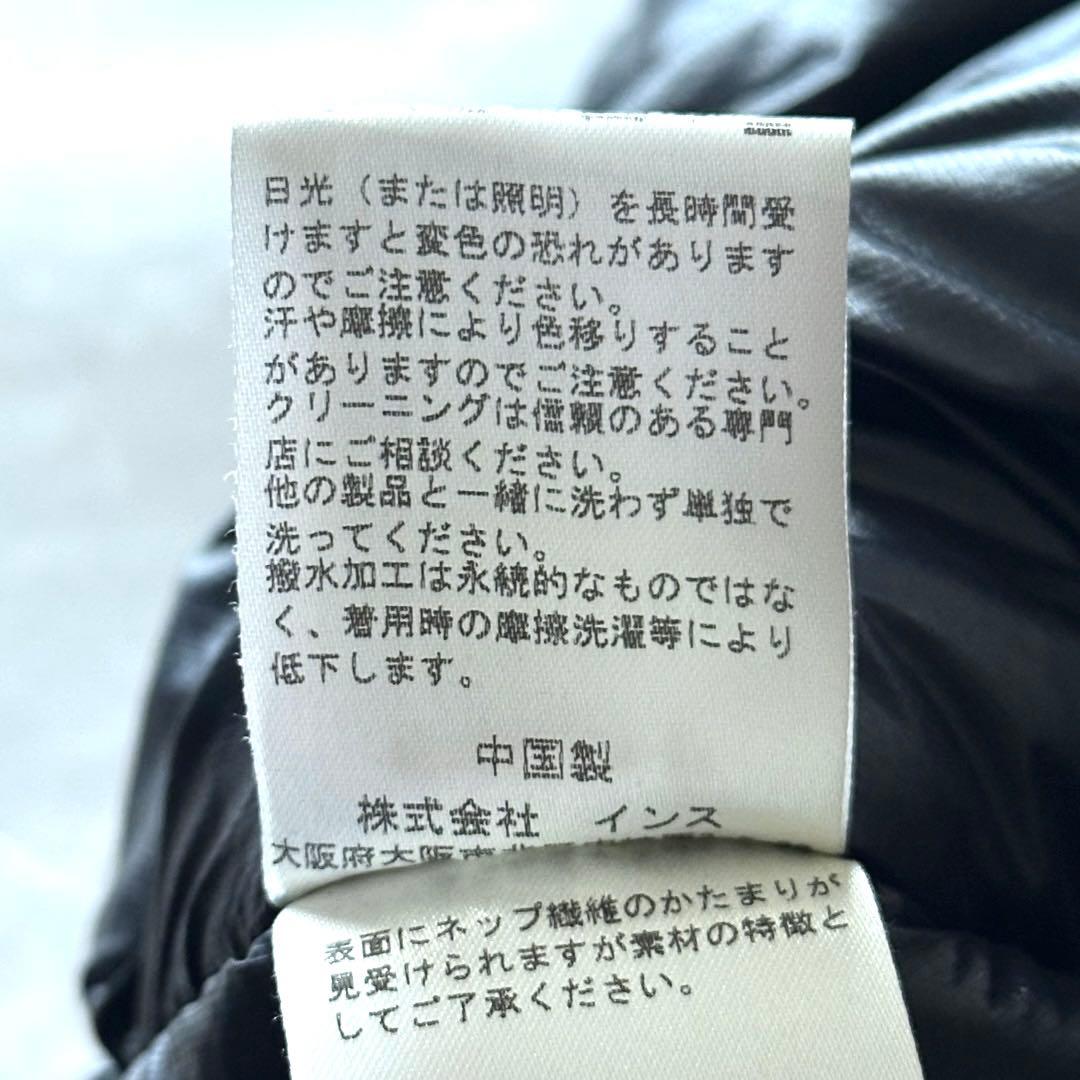 日光（または照明）を長時間受
けますと変色の恐れがあります
のでご注意ください。
汗や摩擦により色移りすること
がありますのでご注意ください。
クリーニングは信頼のある専門
店にご相談ください。
他の製品と一緒に洗わず単独で
洗ってください。
撥水加工は永続的なものではな
く、着用時の摩擦洗濯等により
低下します。
中国製
株式会社　インス
大阪府大阪市北
表面にネップ繊維のかたまりが
見受けられますが素材の特徴と
してご了承ください。